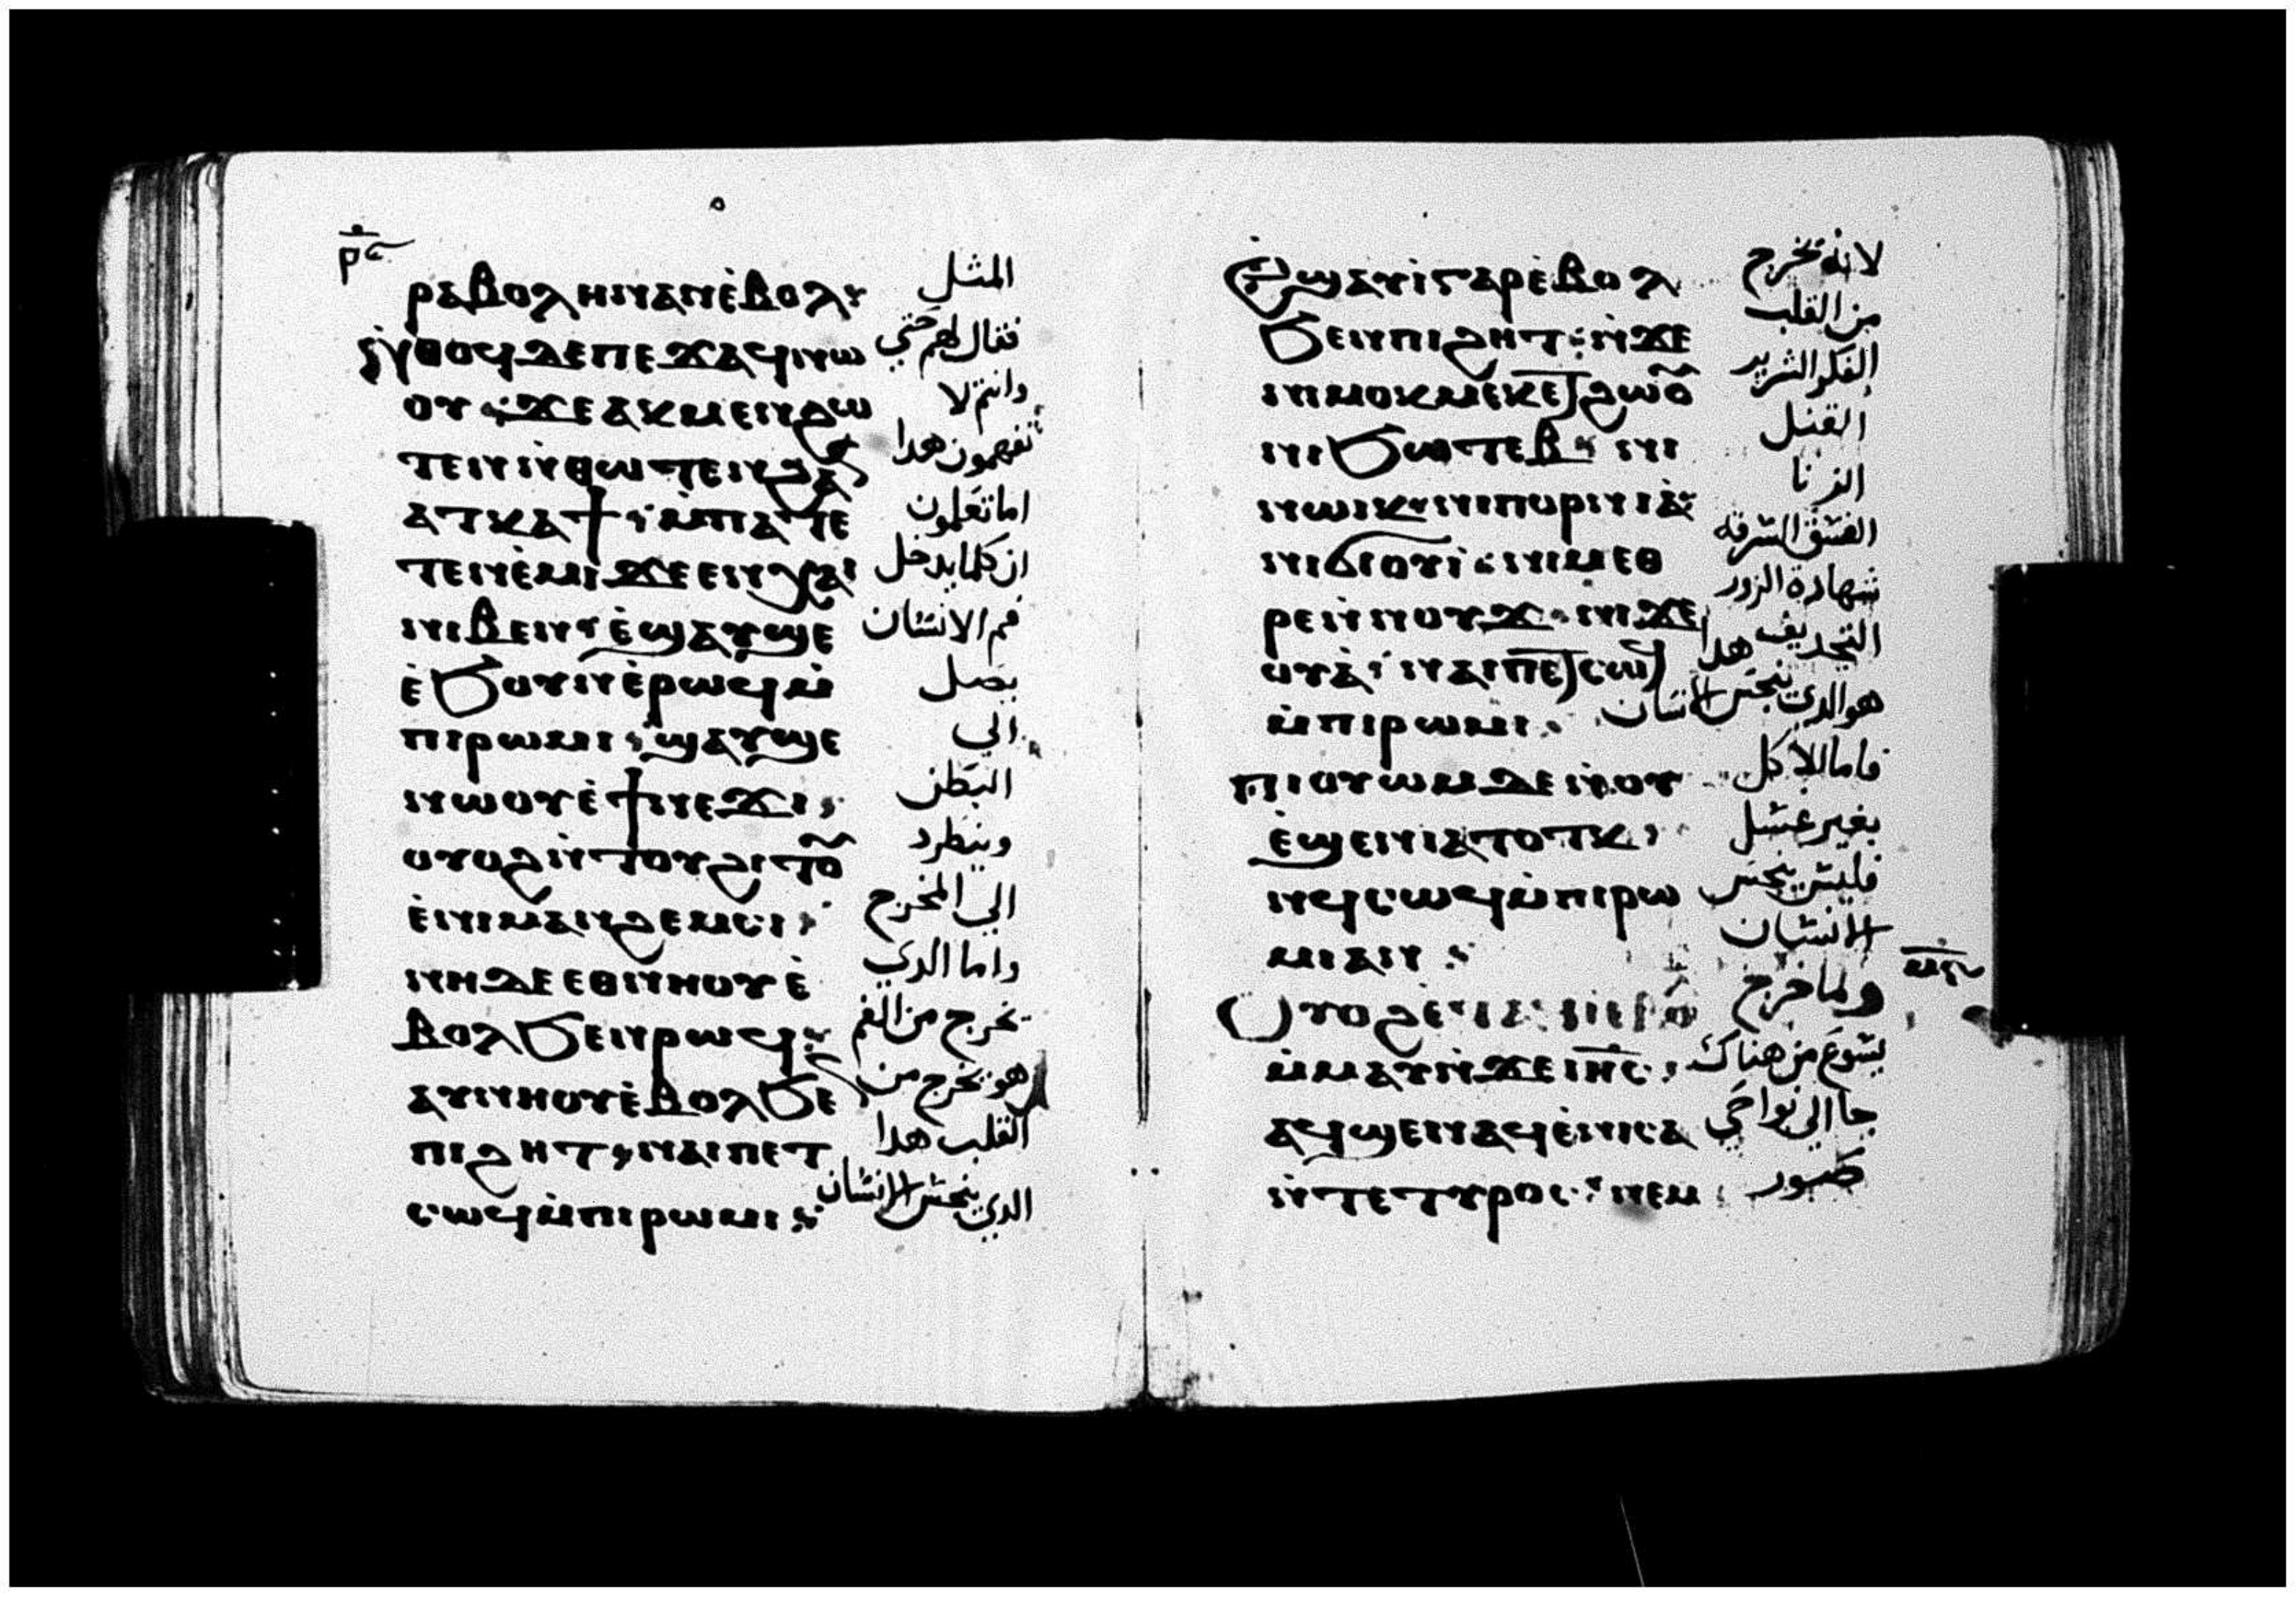 ⲣⲁⲃⲟⲗⲏ ⲛⲁⲛ ⲉ̀ⲃⲟⲗ
ⲛ̀ⲑⲟϥ ⲇⲉ ⲡⲉϫⲁϥ ⲛⲱ
ⲟⲩ ϫⲉ ⲁⲕⲙⲉⲛ ϩⲱ
ⲧⲉⲛ ⲛ̀ⲑⲱⲧⲉⲛ ϩⲁⲛ
ⲁⲧⲕⲁϯ ⲙ̀ⲡⲁⲧⲉ
ⲧⲉⲛⲉ̀ⲙⲓ ϫⲉ ⲉⲛⲭⲁⲓ
ⲛⲓⲃⲉⲛ ⲉ̀ϣⲁⲩϣⲉ
ⲉ̀ϧⲟⲩⲛ ⲉ̀ⲣⲱϥ ⲙ̀
ⲡⲓⲣⲱⲙⲓ ϣⲁⲩϣⲉ
ⲛⲱⲟⲩ ⲉ̀ϯⲛⲉϫⲓ
ⲟⲩⲟϩ ⲛ̀ⲧⲟⲩϩⲓⲧⲟ̅
ⲉ̀ⲛⲓⲙⲁⲛϩⲉⲙⲥⲓ
ⲛⲏ ⲇⲉ ⲉⲑⲛⲏⲟⲩ ⲉ̀
ⲃⲟⲗ ϧⲉⲛ ⲣⲱϥ
ⲁⲩⲛⲏⲟⲩ ⲉ̀ⲃⲟⲗ ϧⲉⲛ
ⲡⲓϩⲏⲧ ⲛⲁⲓ ⲡⲉⲧ
ⲥⲱϥ ⲙ̀ⲡⲓⲣⲱⲙⲓ
المثل
فقال لهم حتي
وانتم لا
تفهمون هدا
اما تعلمون
ان كلما يدخل
فم الانسان
يصل
الي
البطن
وينطرد
الي المخرج
واما الدي
يخرج من الفم
هو يخرج من
القلب هدا
الدي ينجس الانسان
ⲉ̀ϣⲁⲩⲓ̀ ⲅⲁⲣ ⲉ̀ⲃⲟⲗ
ϧⲉⲛ ⲡⲓϩⲏⲧ ⲛ̀ϫⲉ
ⲛⲓⲙⲟⲕⲙⲉⲕ ⲉ̅ϩⲱⲟ̅
ⲛⲓϧⲱⲧⲉⲃ ⲛⲓ
ⲛⲱⲓⲕ ⲛⲓⲡⲟⲣⲛⲓⲁ̀
ⲛⲓϭⲓⲟⲩⲓ̀ ⲛⲓⲙⲉⲑ
ⲣⲉ ⲛ̀ⲛⲟⲩϫ ⲛⲓϫⲉ
ⲟⲩⲁ̀ ⲛⲁⲓ ⲡⲉⲧⲥⲱϥ
ⲙ̀ⲡⲓⲣⲱⲙⲓ
ⲡⲓⲟⲩⲱⲙ ⲇⲉ ⲛ̀ⲟⲩ
ⲉ̀ϣⲉⲛ ⲓⲁ ⲧⲟⲧⲕ
ⲛϥⲥⲱϥ ⲙ̀ⲡⲓⲣⲱ
ⲙⲓ ⲁⲛ
ⲟⲩⲟϩ ⲉ̀ⲧⲁϥⲓ̀ ⲉ̀ⲃⲟⲗ
ⲙ̀ⲙⲁⲩ ⲛ̀ϫⲉ ⲓⲏ̅ⲥ
ⲁϥϣⲉⲛⲁϥ ⲉ̀ⲛⲓⲥⲁ
ⲛ̀ⲧⲉ ⲧⲩⲣⲟⲥ ⲛⲉⲙ
لانه يخرج
من القلب
الفكر الشرير
القتل
الزنا
الفسق السرقه
شهادة الزور
التجديف هدا
هو الدي ينجس الانسان
فاما الاكل
بغير غسل
فليس ينجس
الانسان
ولما خرج
يسوع من هناك
جا الي نواحي
صور